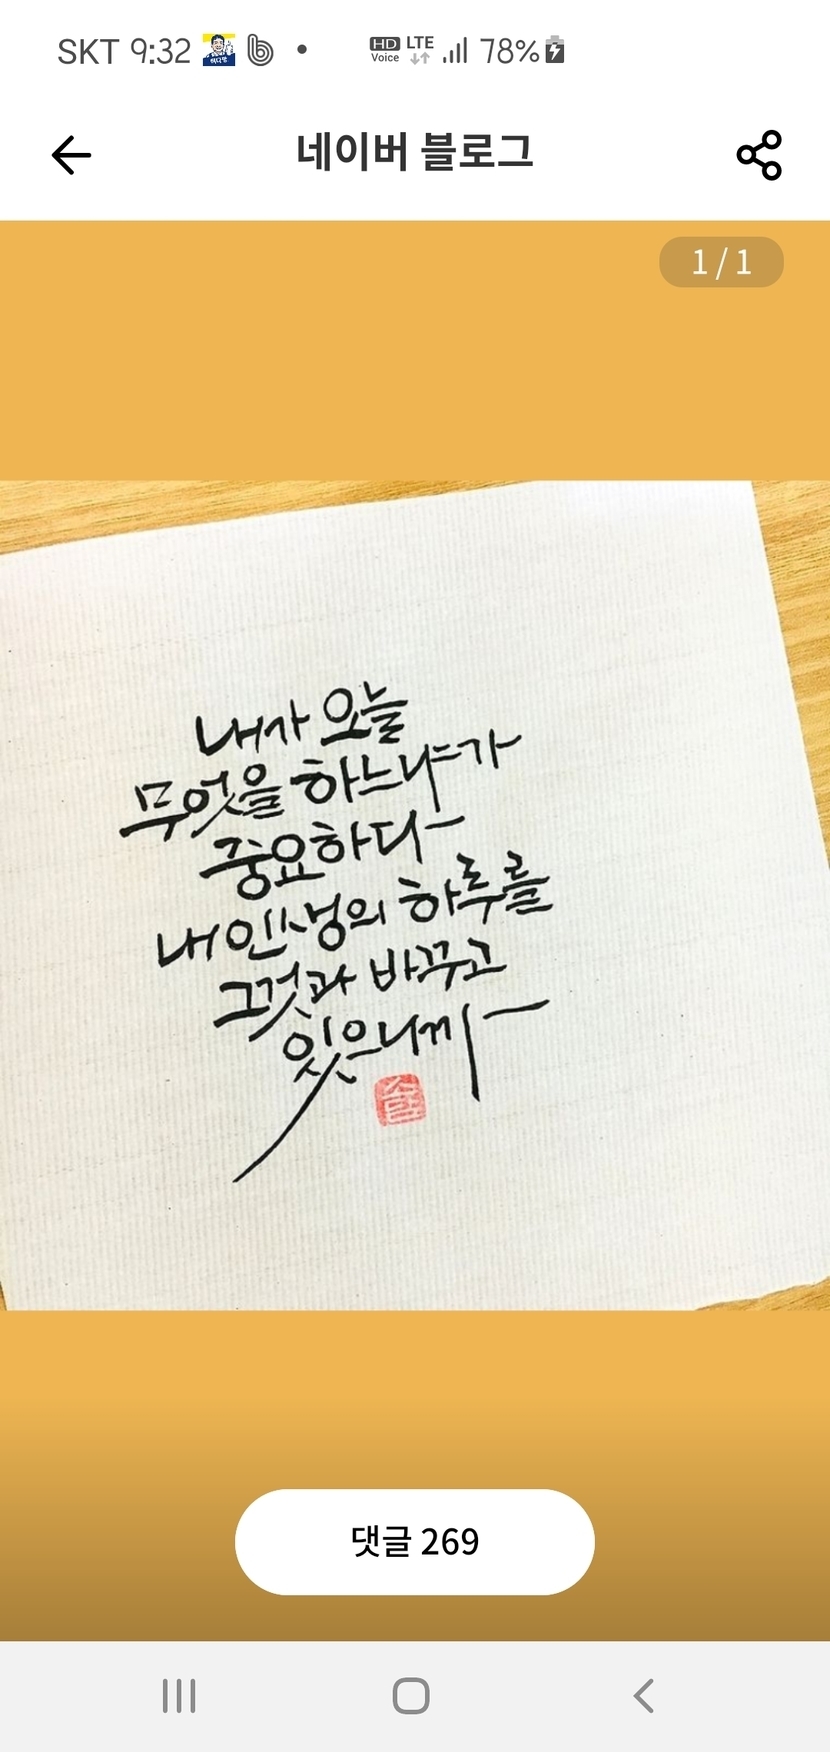 SKT 9:32 HD Voice LTE 78%
네이버 블로그
1 / 1
내가 오늘
무엇을 하느냐가
중요하다
내 인생의 하루를
그것과 바꾸고
있으니까
댓글 269